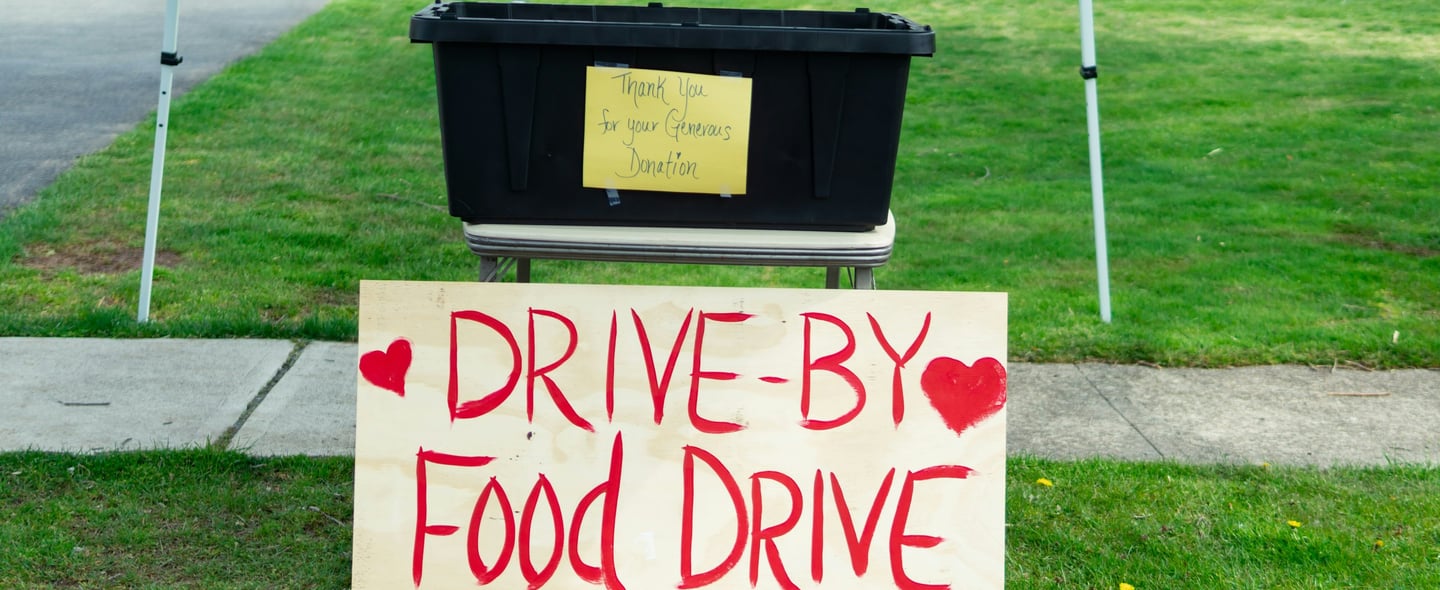 Thank You
for your Generous
Donation
DRIVE-BY
Food DRIVE